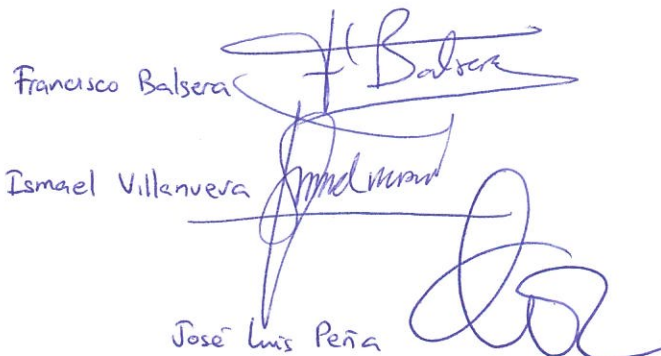 Francisco Balsera Fº Balsera
Ismael Villanueva
José Luis Peña